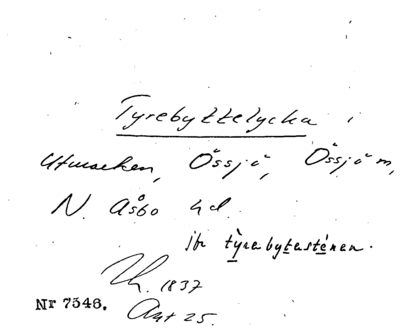 Tyrebyttelycka i
Utmarken, Össjö, Össjö sn,
N. Åsbo hd.
jfr tyrebytastenen.
1837
Nr 7548. Akt 25.